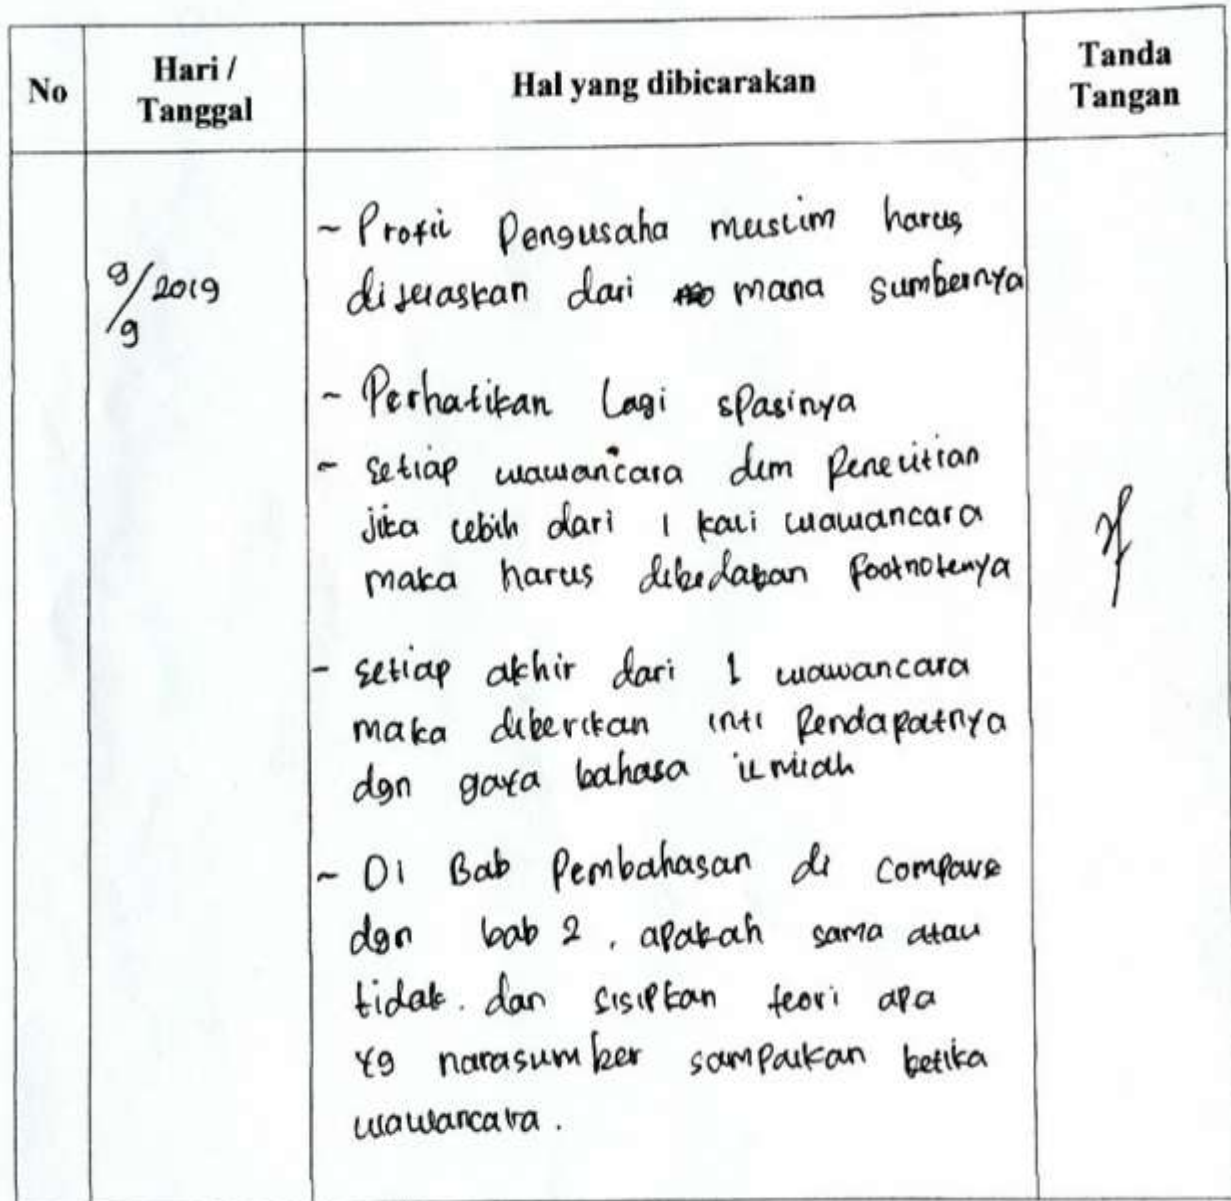 No
Hari /
Tanggal
Hal yang dibicarakan
Tanda
Tangan
9/9 2019
~ Profil Pengusaha muslim harus
dijelaskan dari mana sumbernya
~ Perhatikan lagi spasinya
~ setiap wawancara dlm Penelitian
jika lebih dari 1 kali wawancara
maka harus dibedakan footnotenya
- setiap akhir dari 1 wawancara
maka diberikan inti Pendapatnya
dgn gaya bahasa ilmiah
~ Di Bab Pembahasan di compare
dgn bab 2 . apakah sama atau
tidak . dan sisipkan teori apa
yg narasumber sampaikan ketika
wawancara .